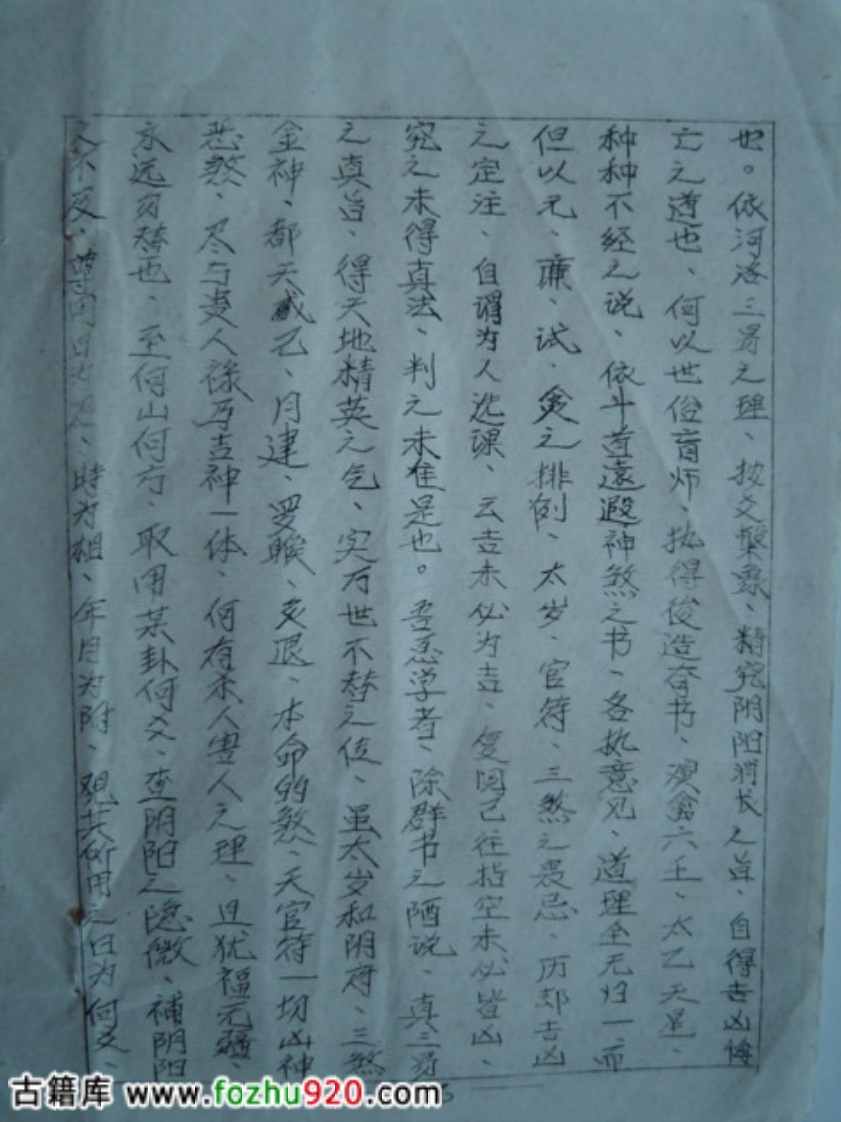 也。依河洛三易之理、按爻繫彖、精究阴阳消长之旨、自得吉凶悔
亡之道也、何以世俗盲师、执得俊造奋书、演禽六壬、太乙天星、
种种不经之说、依斗首遠遐神煞之书、各执意见、道理全无归一而
但以元、廉、武、贪之排例、太岁、官符、三煞之畏忌、历却吉凶
之定注、自谓为人造课、云吉未必为吉、复阅已往指空未必皆凶、
究之未得真法、判之未准是也。吾愿学者、除群书之陋说、真三易
之真旨、得天地精英之气、实万世不替之位、虽太岁和阴府、三煞
金神、都天戊己、月建、罗睺、炙退、本命的煞、天官符一切凶神
恶煞、尽与贵人禄马吉神一体、何有杀人害人之理、且犹福元疆、
永远勿替也、至何山何方、取用某卦何爻、查阴阳之隐微、补阴阳
之不及、日为君、時为相、年月为附、观其所用之日为何爻、
古籍库 www.fozhu920.com